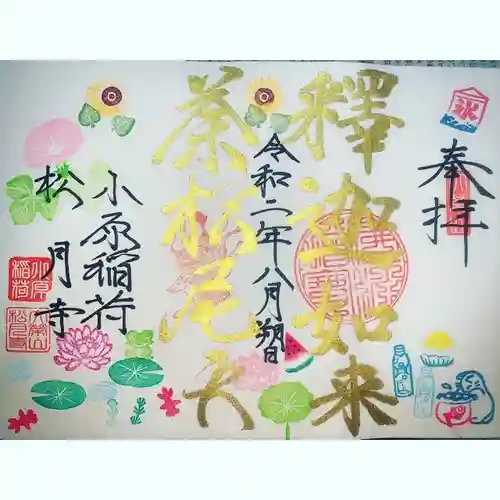 氷
奉拝
釋迦如来
令和二年八月朔日
茶枳尼天
小原稲荷
松月寺
小原
稲荷